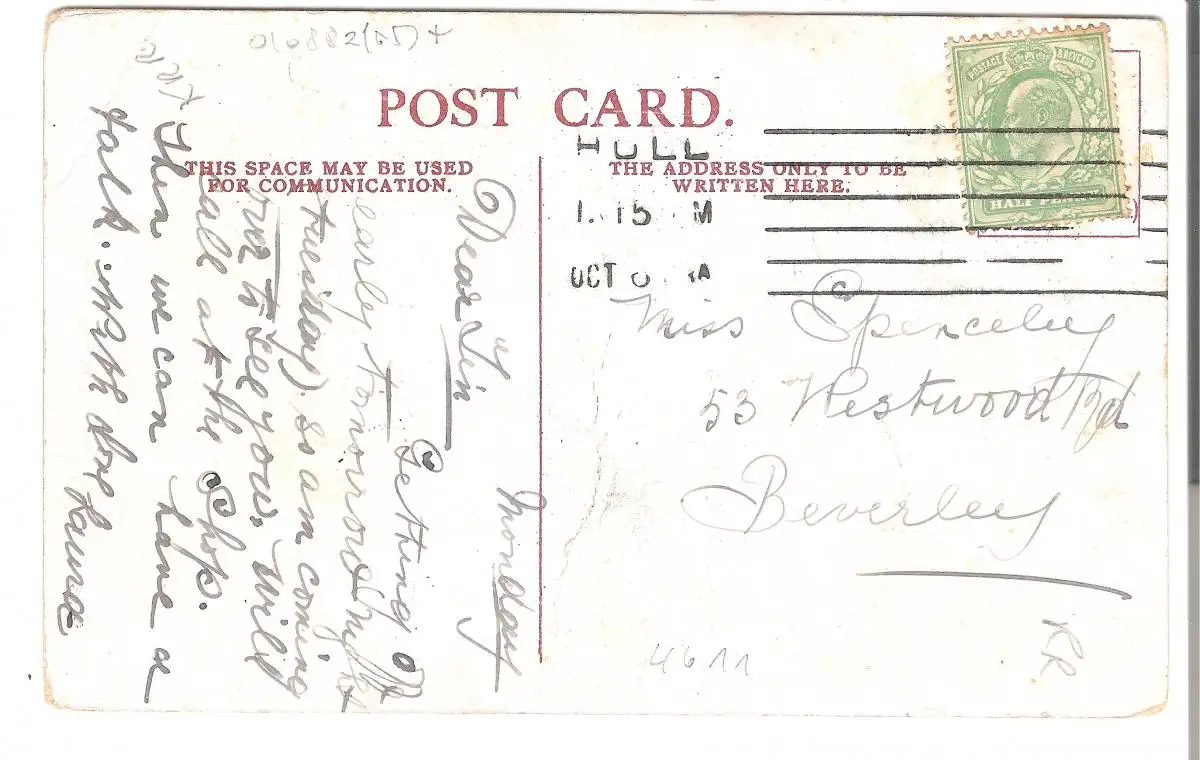 010882(05)+
POST CARD.
THIS SPACE MAY BE USED
FOR COMMUNICATION.
THE ADDRESS ONLY TO BE
WRITTEN HERE.
POSTAGE & REVENUE
HALF PENNY
HULL
1.15 M
OCT
Monday
Dear "Tin
Getting off
early tomorrow night
(Tuesday). so am coming
over to see you. Will
call at the Shop.
Then we can have a
talk. With love Laura
Miss Spenceley
53 Westwood Rd
Beverley
4611
RR